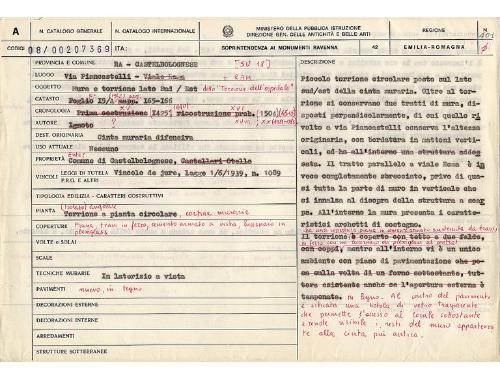 A
N. CATALOGO GENERALE
N. CATALOGO INTERNAZIONALE
MINISTERO DELLA PUBBLICA ISTRUZIONE
DIREZIONE GEN. DELLE ANTICHITÀ E BELLE ARTI
REGIONE
N.
CODICI
08/00207369
ITA:
SOPRINTENDENZA AI MONUMENTI RAVENNA
42
EMILIA-ROMAGNA
PROVINCIA E COMUNE
RA - CASTELBOLOGNESE
[SU 18]
LUOGO
Via Piancastelli - Viale Roma
+ RAM.
OGGETTO
Mura e torrione lato Sud/Est
detto "Torrione dell'ospedale"
CATASTO
Foglio 19/1 mapp. 165-166
CRONOLOGIA
Prima costruzione 1425; Ricostruzione prob. 1504
AUTORE
Ignoto
DEST. ORIGINARIA
Cinta muraria difensiva
USO ATTUALE
Nessuno
PROPRIETÀ
Comune di Castelbolognese, Castellari Otello
VINCOLI
LEGGI DI TUTELA
P.R.G. E ALTRI
Vincolo de jure, Legge 1/6/1939, n. 1089
TIPOLOGIA EDILIZIA - CARATTERI COSTRUTTIVI
PIANTA
Torrione a pianta circolare,
COPERTURE
Piana, travi in ferro, cemento armato a vista, lucernario in plexiglass
VOLTE o SOLAI
SCALE
TECNICHE MURARIE
In laterizio a vista
PAVIMENTI
nuovo, in legno
DECORAZIONI ESTERNE
DECORAZIONI INTERNE
ARREDAMENTI
STRUTTURE SOTTERRANEE
DESCRIZIONE
Piccolo torrione circolare posto sul lato
sud/est della cinta muraria. Oltre al torrione
si conservano due tratti di mura, disposti
perpendicolarmente, di cui quello rivolto
a via Piancastelli conserva l'altezza
originaria, con bordatura in mattoni verticali,
ed ha all'interno una struttura addossata.
Il tratto parallelo a viale Roma è invece
completamente sbrecciato, privo di quasi
tutta la parte di muro in verticale che
si innalza al disopra della struttura a scarpa.
All'interno la mura presenta i caratteristici
archetti di costagno.
Il torrione è coperto con tetto a due falde,
con coppi, mentre all'interno vi è un unico
ambiente con piano di pavimentazione che posa
sulla volta di un forno sottostante, tuttora
esistente anche se l'apertura esterna è
tamponata.
in legno. Al centro del pavimento
è situata una botola di vetro trasparente
che permette l'accesso al locale sottostante
e rende visibile i resti del muro appartenente
alla cinta più antica.